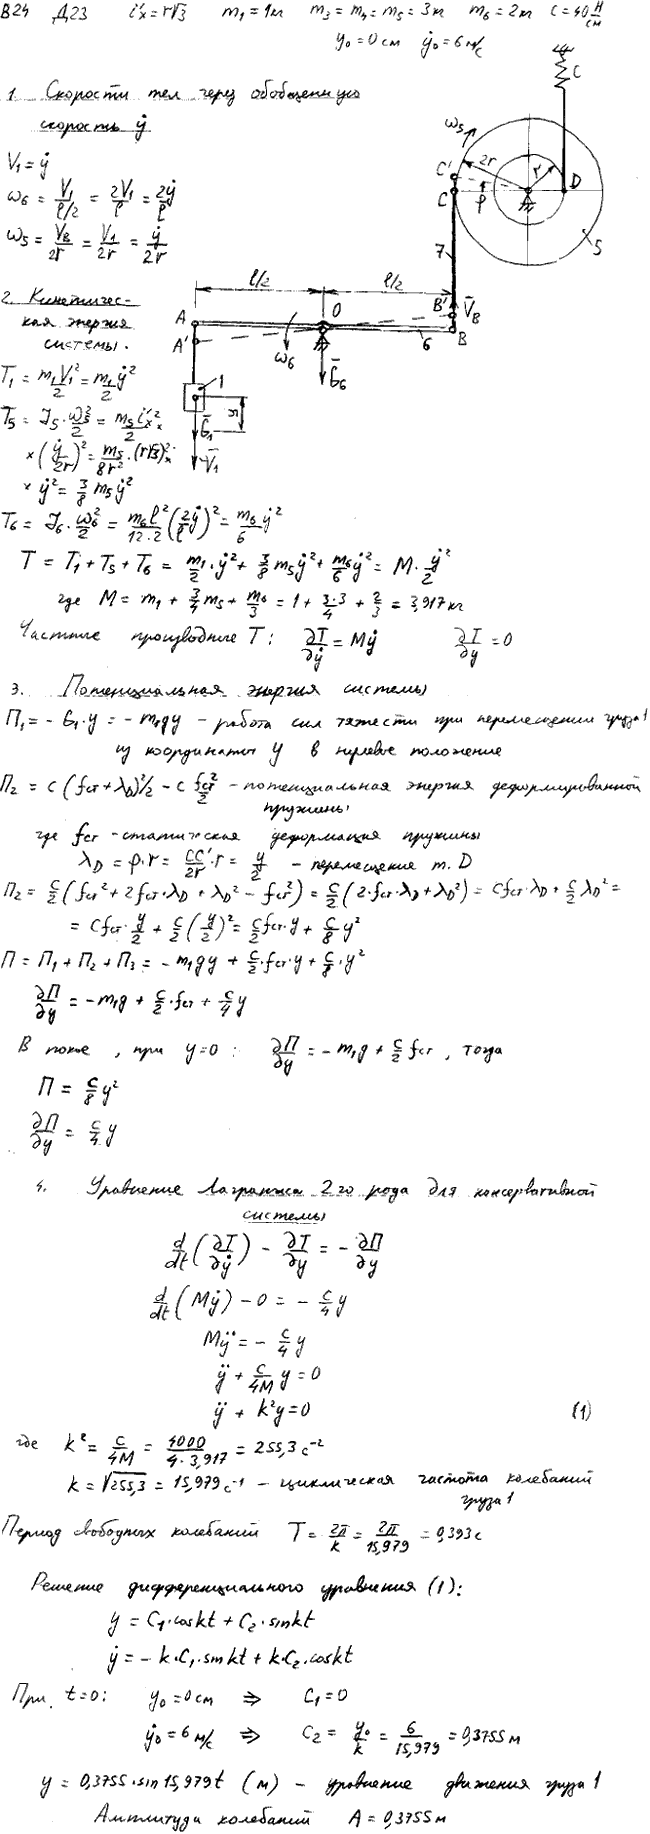 В24 Д23 i'x = r√3 m₁ = 1кг m₃ = m₄ = m₅ = 3кг m₆ = 2кг C = 40 Н/см
y₀ = 0 см ẏ₀ = 6 м/с
1. Скорости тел через обобщенную
скорость ẏ
V₁ = ẏ
ω₆ = V₁/(l/2) = 2V₁/l = 2ẏ/l
ω₅ = V_B/2r = V₁/2r = ẏ/2r
ω₅ C' 2r r C D C ρ 5 7
l/2 l/2
A O B' V̄_B A' B 6
ω₆ Ḡ₆
1 y Ḡ₁ V̄₁
2. Кинетичес-
кая энергия
системы.
T₁ = m₁V₁²/2 = m₁/2 ẏ²
T₅ = J₅·ω₅²/2 = m₅/2 i'x² ×
× (ẏ/2r)² = m₅/8r² · (r√3)² ×
× ẏ² = 3/8 m₅ẏ²
T₆ = J₆·ω₆²/2 = m₆l²/12·2 (2/l ẏ)² = m₆/6 ẏ²
T = T₁ + T₅ + T₆ = m₁/2·ẏ² + 3/8 m₅ẏ² + m₆/6 ẏ² = M·ẏ²/2
где M = m₁ + 3/4 m₅ + m₆/3 = 1 + 3·3/4 + 2/3 = 3,917 кг
Частные производные T: ∂T/∂ẏ = Mẏ ∂T/∂y = 0
3. Потенциальная энергия системы
П₁ = - G₁·y = - m₁gy - работа сил тяжести при перемещении груза 1
из координаты y в нулевое положение
П₂ = c(fст + λ_D)²/2 - c fст²/2 - потенциальная энергия деформированной
пружины,
где fст - статическая деформация пружины
λ_D = φ·r = CC'/2r·r = y/2 - перемещение т. D
П₂ = c/2(fст² + 2fст·λ_D + λ_D² - fст²) = c/2(2·fст·λ_D + λ_D²) = cfст·λ_D + c/2 λ_D² =
= cfст·y/2 + c/2(y/2)² = c/2 fст·y + c/8 y²
П = П₁ + П₂ + П₃ = - m₁gy + c/2·fст·y + c/8·y²
∂П/∂y = - m₁g + c/2·fст + c/4 y
В покое, при y=0: ∂П/∂y = - m₁g + c/2 fст, тогда
П = c/8 y²
∂П/∂y = c/4 y
4. Уравнение Лагранжа 2го рода для консервативной
системы
d/dt(∂T/∂ẏ) - ∂T/∂y = - ∂П/∂y
d/dt(Mẏ) - 0 = - c/4 y
Mÿ = - c/4 y
ÿ + c/4M y = 0
ÿ + k²y = 0 (1)
где k² = c/4M = 4000/4·3,917 = 255,3 с⁻²
k = √255,3 = 15,979 с⁻¹ - циклическая частота колебаний
груза 1
Период свободных колебаний T = 2π/k = 2π/15,979 = 0,393 с
Решение дифференциального уравнения (1):
y = C₁·coskt + C₂·sinkt
ẏ = - k·C₁·sinkt + k·C₂·coskt
При t=0: y₀ = 0 см ⇒ C₁ = 0
ẏ₀ = 6 м/с ⇒ C₂ = ẏ₀/k = 6/15,979 = 0,3755 м
y = 0,3755·sin 15,979t (м) - уравнение движения груза 1
Амплитуда колебаний A = 0,3755 м